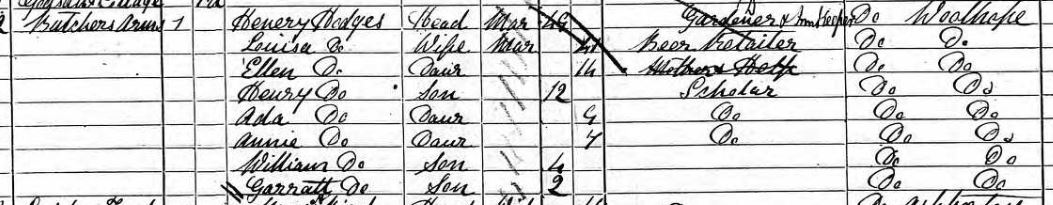 Butchers Arms 1 Henery Hodges Head Mar 49 Gardener & Inn Keeper Do Woolhope
Louisa Do Wife Mar 41 Beer Retailer Do Do
Ellen Do Daur 14 Mothers Help Do Do
Henery Do Son 12 Scholar Do Do
Ada Do Daur 9 Do Do Do
Annie Do Daur 7 Do Do Do
William Do Son 4 Do Do
Garratt Do Son 2 Do Do